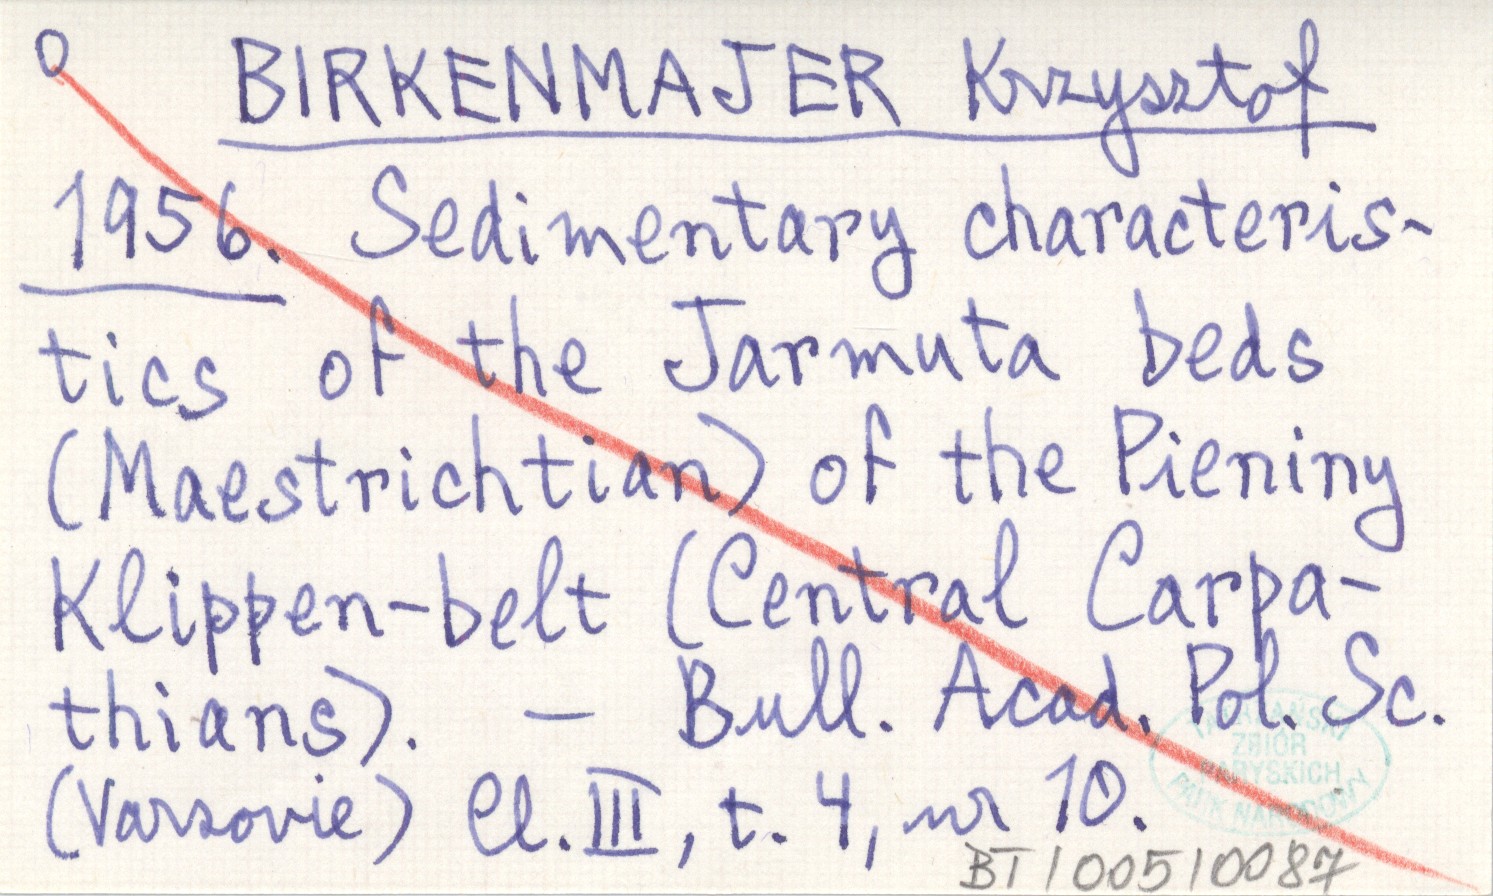 O BIRKENMAJER Krzysztof
1956. Sedimentary characteris-
tics of the Jarmuta beds
(Maestrichtian) of the Pieniny
Klippen-belt (Central Carpa-
thians). — Bull. Acad. Pol. Sc.
(Varsovie) Cl. III, t. 4, nr 10.
TATRZAŃSKI
ZBIÓR
PARYSKICH
PARK NARODOWY
BT/005/0087